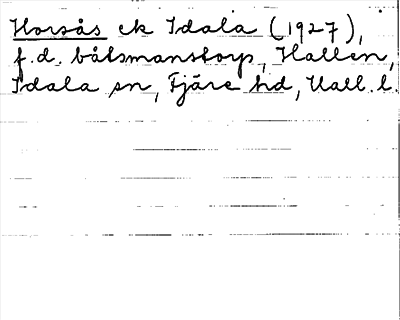 Horsås ek Idala (1927),
f.d. båtsmanstorp, Hallen,
Idala sn, Fjäre hd, Hall. l.